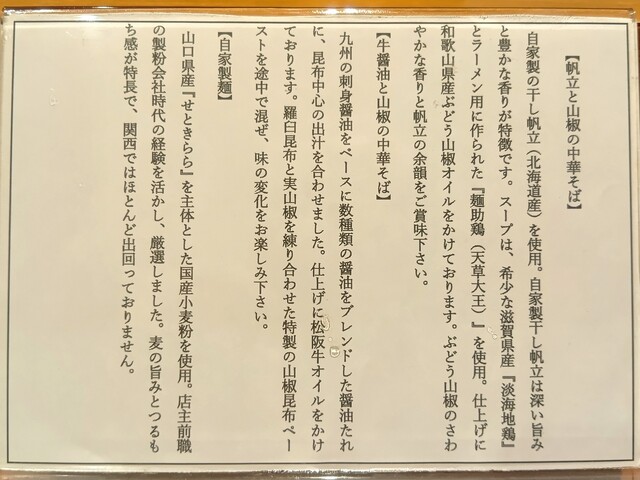 【帆立と山椒の中華そば】
自家製の干し帆立（北海道産）を使用。自家製干し帆立は深い旨み
と豊かな香りが特徴です。スープは、希少な滋賀県産『淡海地鶏』
とラーメン用に作られた『麺助鶏（天草大王）』を使用。仕上げに
和歌山県産ぶどう山椒オイルをかけております。ぶどう山椒のさわ
やかな香りと帆立の余韻をご賞味下さい。
【牛醤油と山椒の中華そば】
九州の刺身醤油をベースに数種類の醤油をブレンドした醤油たれ
に、昆布中心の出汁を合わせました。仕上げに松阪牛オイルをかけ
ております。羅臼昆布と実山椒を練り合わせた特製の山椒昆布ペー
ストを途中で混ぜ、味の変化をお楽しみ下さい。
【自家製麺】
山口県産『せときらら』を主体とした国産小麦粉を使用。店主前職
の製粉会社時代の経験を活かし、厳選しました。麦の旨みとつるも
ち感が特長で、関西ではほとんど出回っておりません。